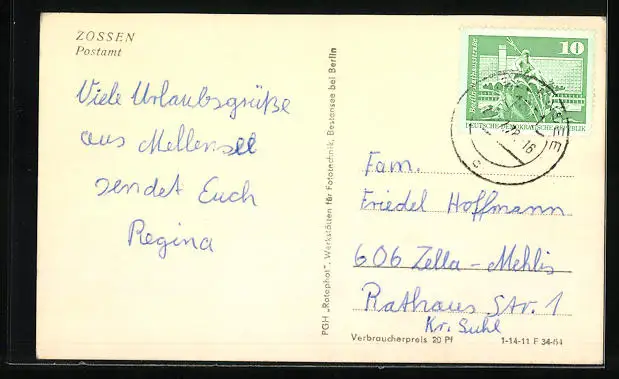 ZOSSEN
Postamt
Viele Urlaubsgrüße
aus Mellensee
sendet Euch
Regina
PGH „Rotophot", Werkstätten für Fototechnik, Bestensee bei Berlin
10
DEUTSCHE DEMOKRATISCHE REPUBLIK
Fam.
Friedel Hoffmann
606 Zella-Mehlis
Rathaus Str. 1
Kr. Suhl
Verbraucherpreis 20 Pf
1-14-11 F 34-64